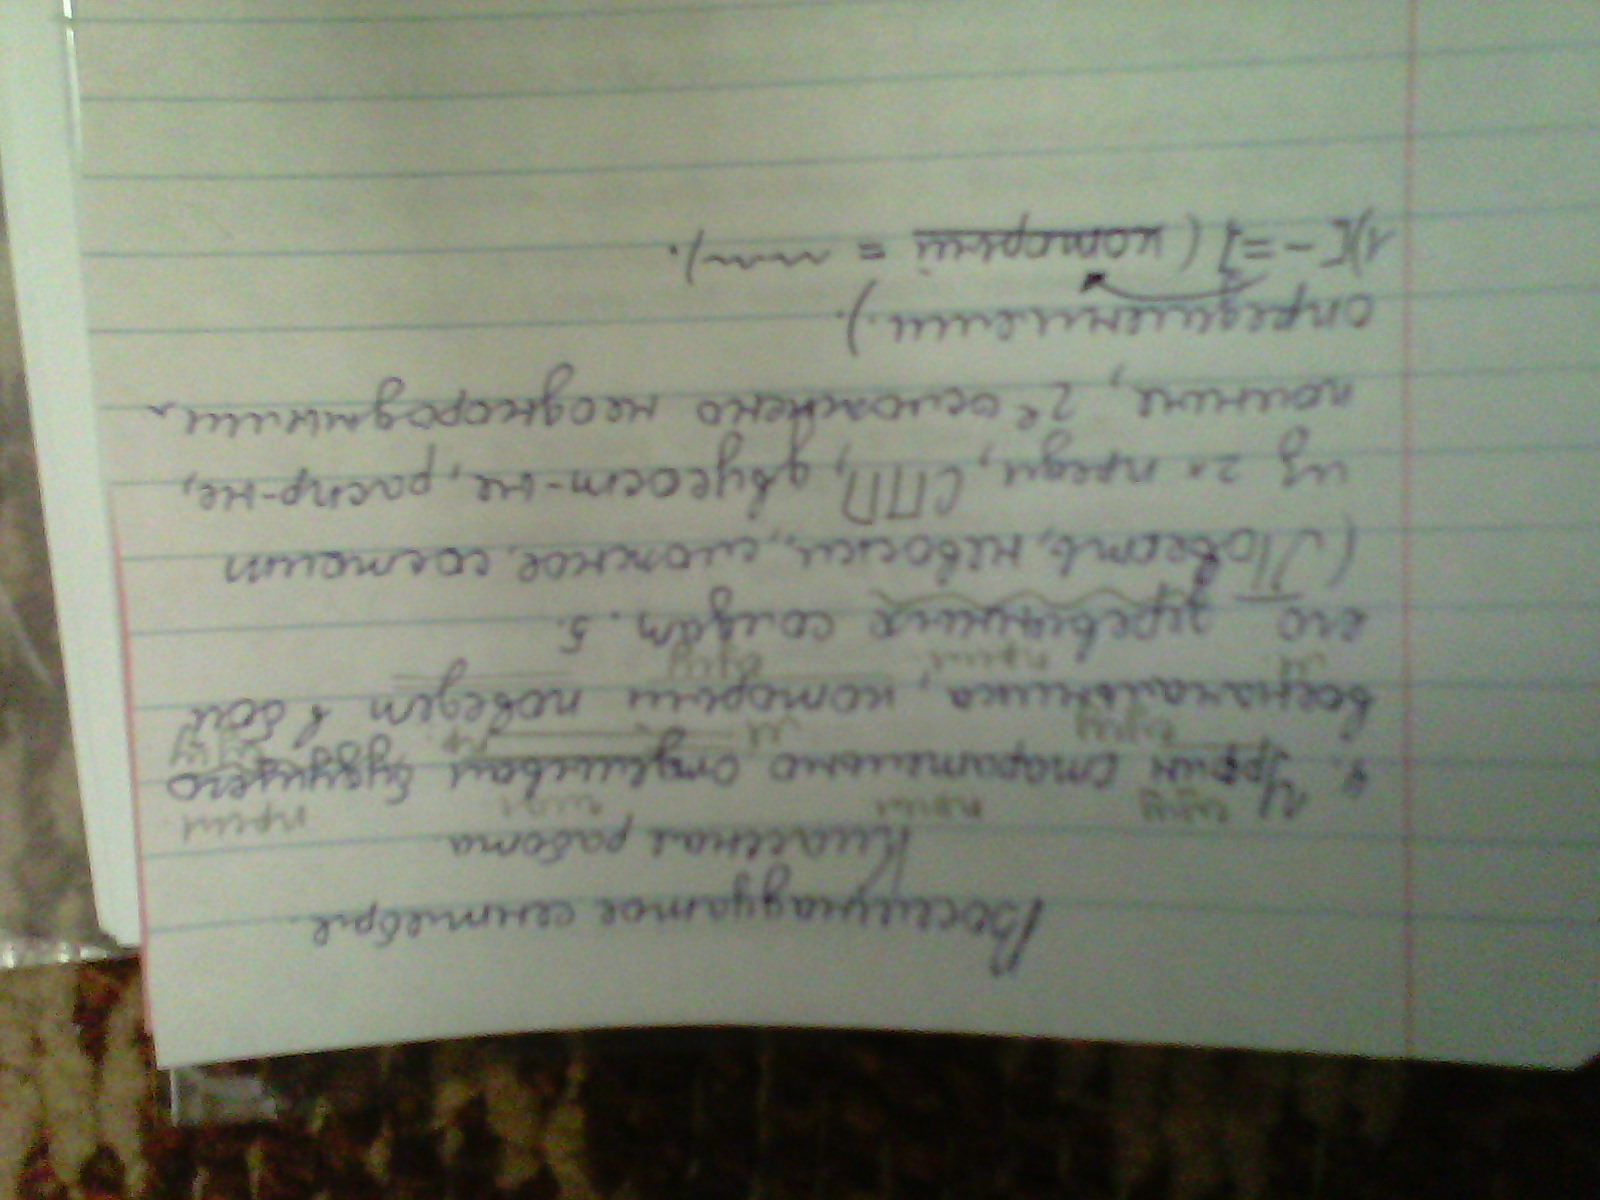 Восемнадцатое сентября.
Классная работа
4. Урфин старательно отделывал будущего
военачальника, который поведет в бой
его деревянных солдат. 5.
(Повеств, невоскл, сложное, состоит
из 2х предл, СПП, двусост-не, распр-не,
полные, 2е осложнено неоднородными
определениями.)
1) [ - = ] ( который = ).